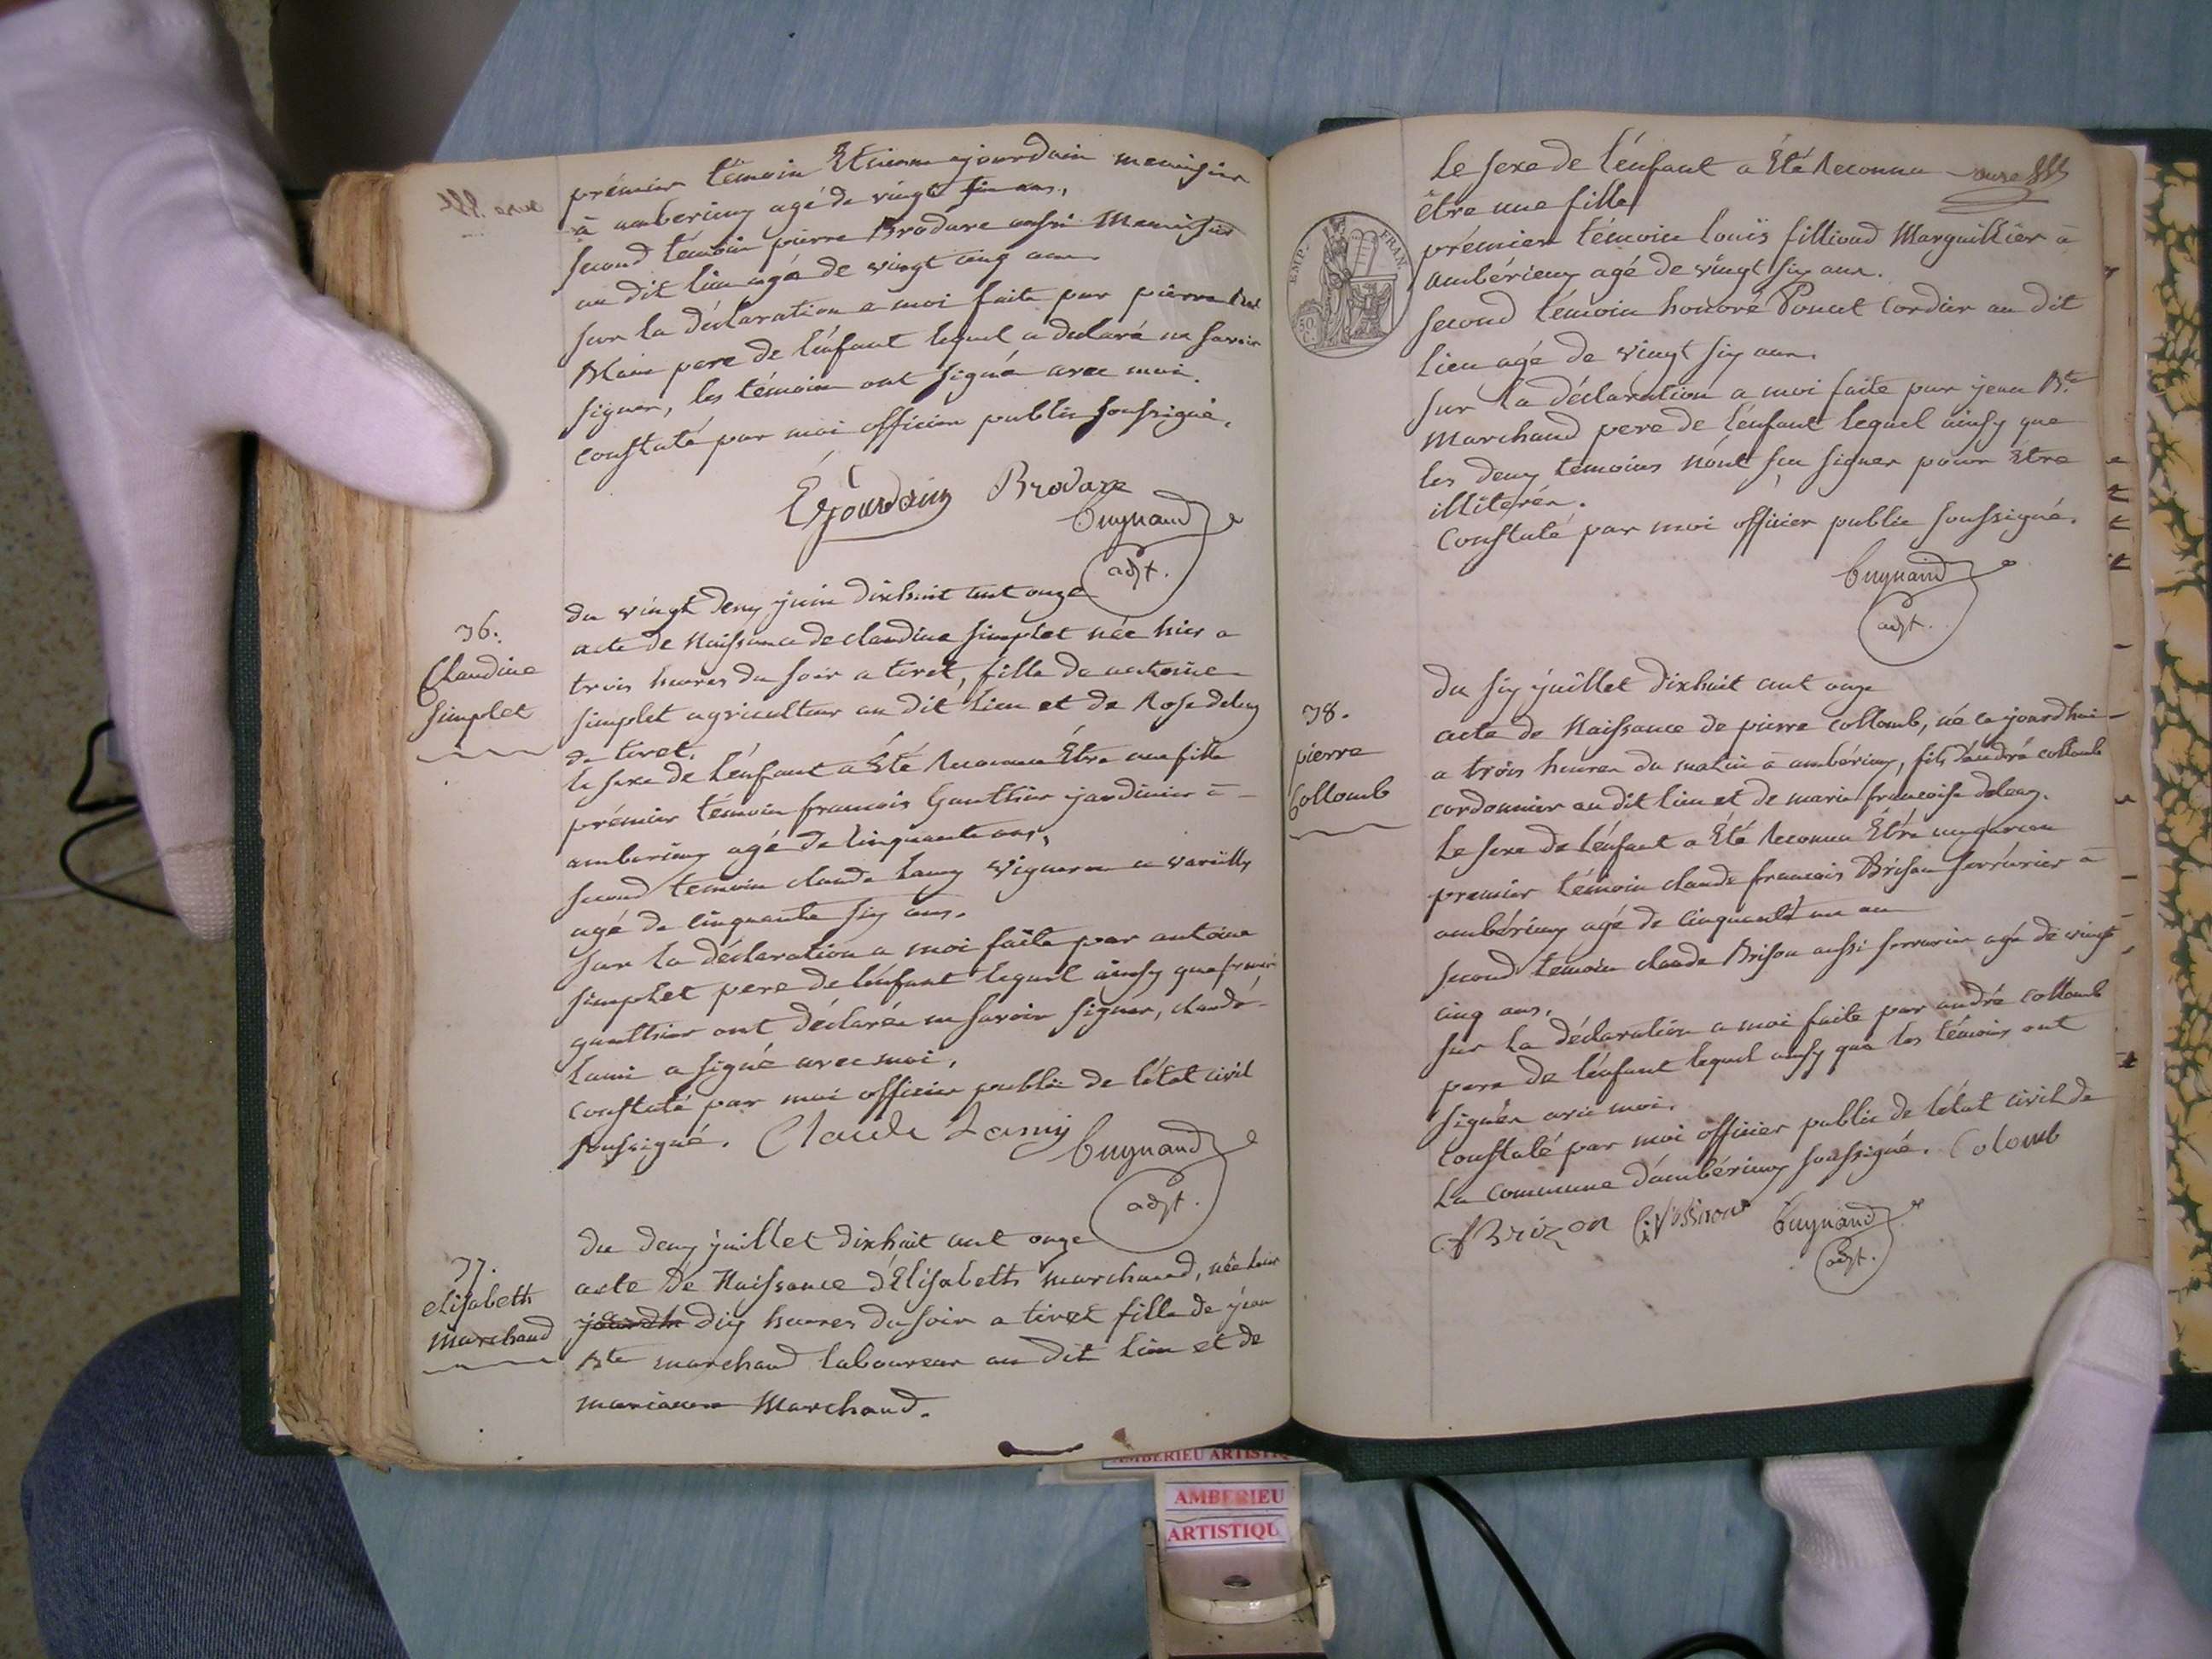 prémier témoin Etienne jourdain menuisier
à amberieux agé de vingt six ans,
second témoin pierre Brodare aussi Menuisier
au dit lieu agé de vingt cinq ans.
sur la déclaration a moi faite par pierre
Blain pere de l'énfant lequel a declaré ne savoir
signer, les témoins ont signé avec moi.
constaté par moi officier public soussigné.
EJourdain Brodare
Cuynaud
adjt.
36.
Claudine
simplet
du vingt deux juin dixhuit cent onze
acte de Naissance de claudine simplet née hier a
trois heures du soir a tiret, fille de antoine
simplet agriculteur au dit lieu et de Rose
de tiret.
le sexe de l'énfant a Été Reconnu Être une fille
prémier témoin francois Gauthier jardinier à
amberieux agé de cinquante ans,
second temoin claude Lamy vigneron a vareilly
agé de cinquante six ans.
sur la déclaration a moi faite par antoine
simplet pere de lénfant lequel ainsy que francois
gauthier ont déclarés ne savoir signer, claude
Lami a signé avec moi,
constaté par moi officier public de l'état civil
soussigné. Claude Lamy Cuynaud
adjt.
37.
elisabeth
marchand
du deux juillet dixhuit cent onze
acte de Naissance d'Élisabeth marchand, née hier
dix heures du soir a tiret fille de jean
Bte marchand laboureur au dit lieu et de
marianne Marchand.
Le sexe de l'énfant a Été Reconnu
être une fille
EMP. FRAN.
50 C.
prémier témoin louis fillioud Marguillier à
ambérieux agé de vingt six ans.
second témoin honoré Poncet Cordier au dit
lieu agé de vingt six ans.
sur la déclaration a moi faite par jean Bte
Marchand pere de l'énfant lequel ainsy que
les deux témoins n'ont su signer pour Etre
illiterés.
Constaté par moi officier public soussigné.
Cuynaud
adjt.
38.
pierre
Collomb
du six juillet dixhuit cent onze
acte de Naissance de pierre collomb, né cejourdhui
a trois heures du matin à ambérieux, fils d'andré collomb
cordonnier au dit lieu et de marie francoise
Le sexe de l'énfant a Été Reconnu Etre un garcon
premier témoin claude francois Brison serrurier à
ambérieux agé de cinquante un an
second temoin claude Brison aussi serrurier agé de vingt
cinq ans,
sur la déclaration a moi faite par andré collomb
pere de l'énfant lequel ainsy que les témoins ont
signés avec moi.
Constaté par moi officier public de l'état civil de
La commune d'ambérieux soussigné. Colomb
cf Brizon Cuynaud
adjt.
AMBERIEU ARTISTIQ
AMBERIEU
ARTISTIQU